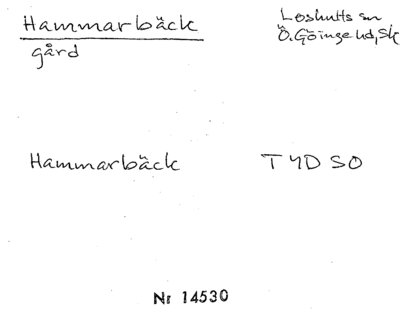 Hammarbäck
gård
Loshults sn
Ö. Göinge hd, Sk
Hammarbäck TYD SO
Nr 14530